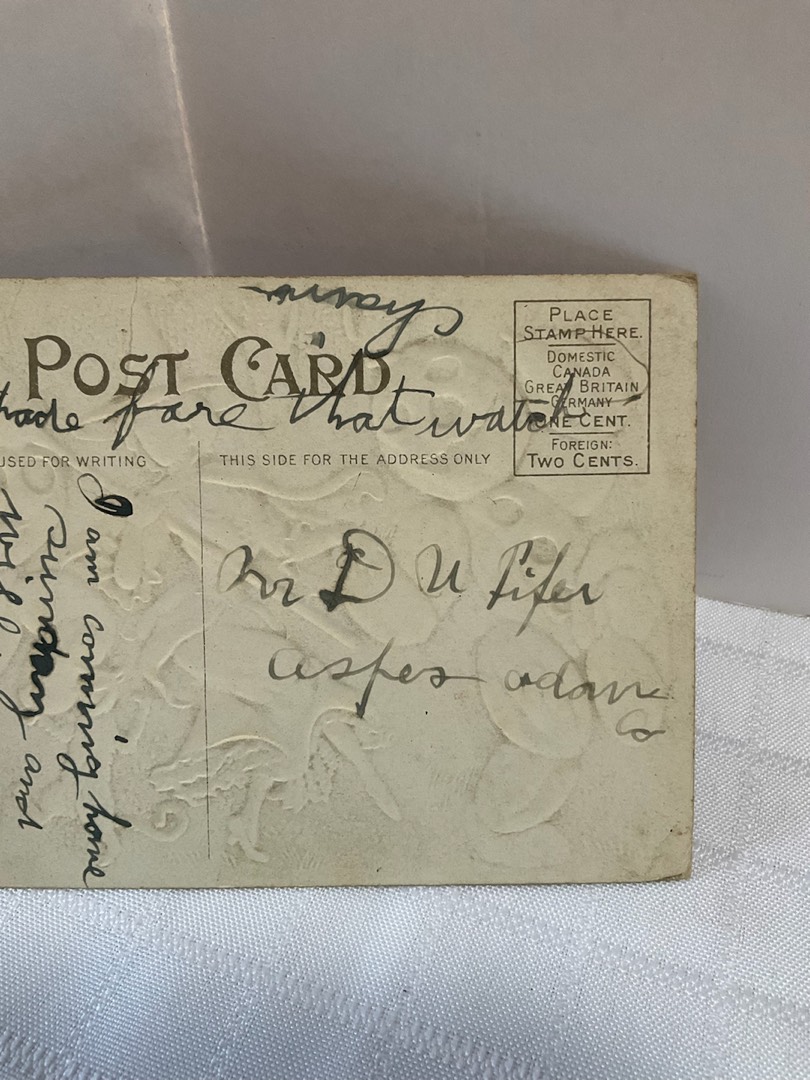 chain
POST CARD
fare that watch
USED FOR WRITING
THIS SIDE FOR THE ADDRESS ONLY
PLACE
STAMP HERE.
DOMESTIC
CANADA
GREAT BRITAIN
GERMANY
ONE CENT.
FOREIGN:
TWO CENTS.
Mr D U Pifer
aspers adams
Co
I am coming home
sunday and